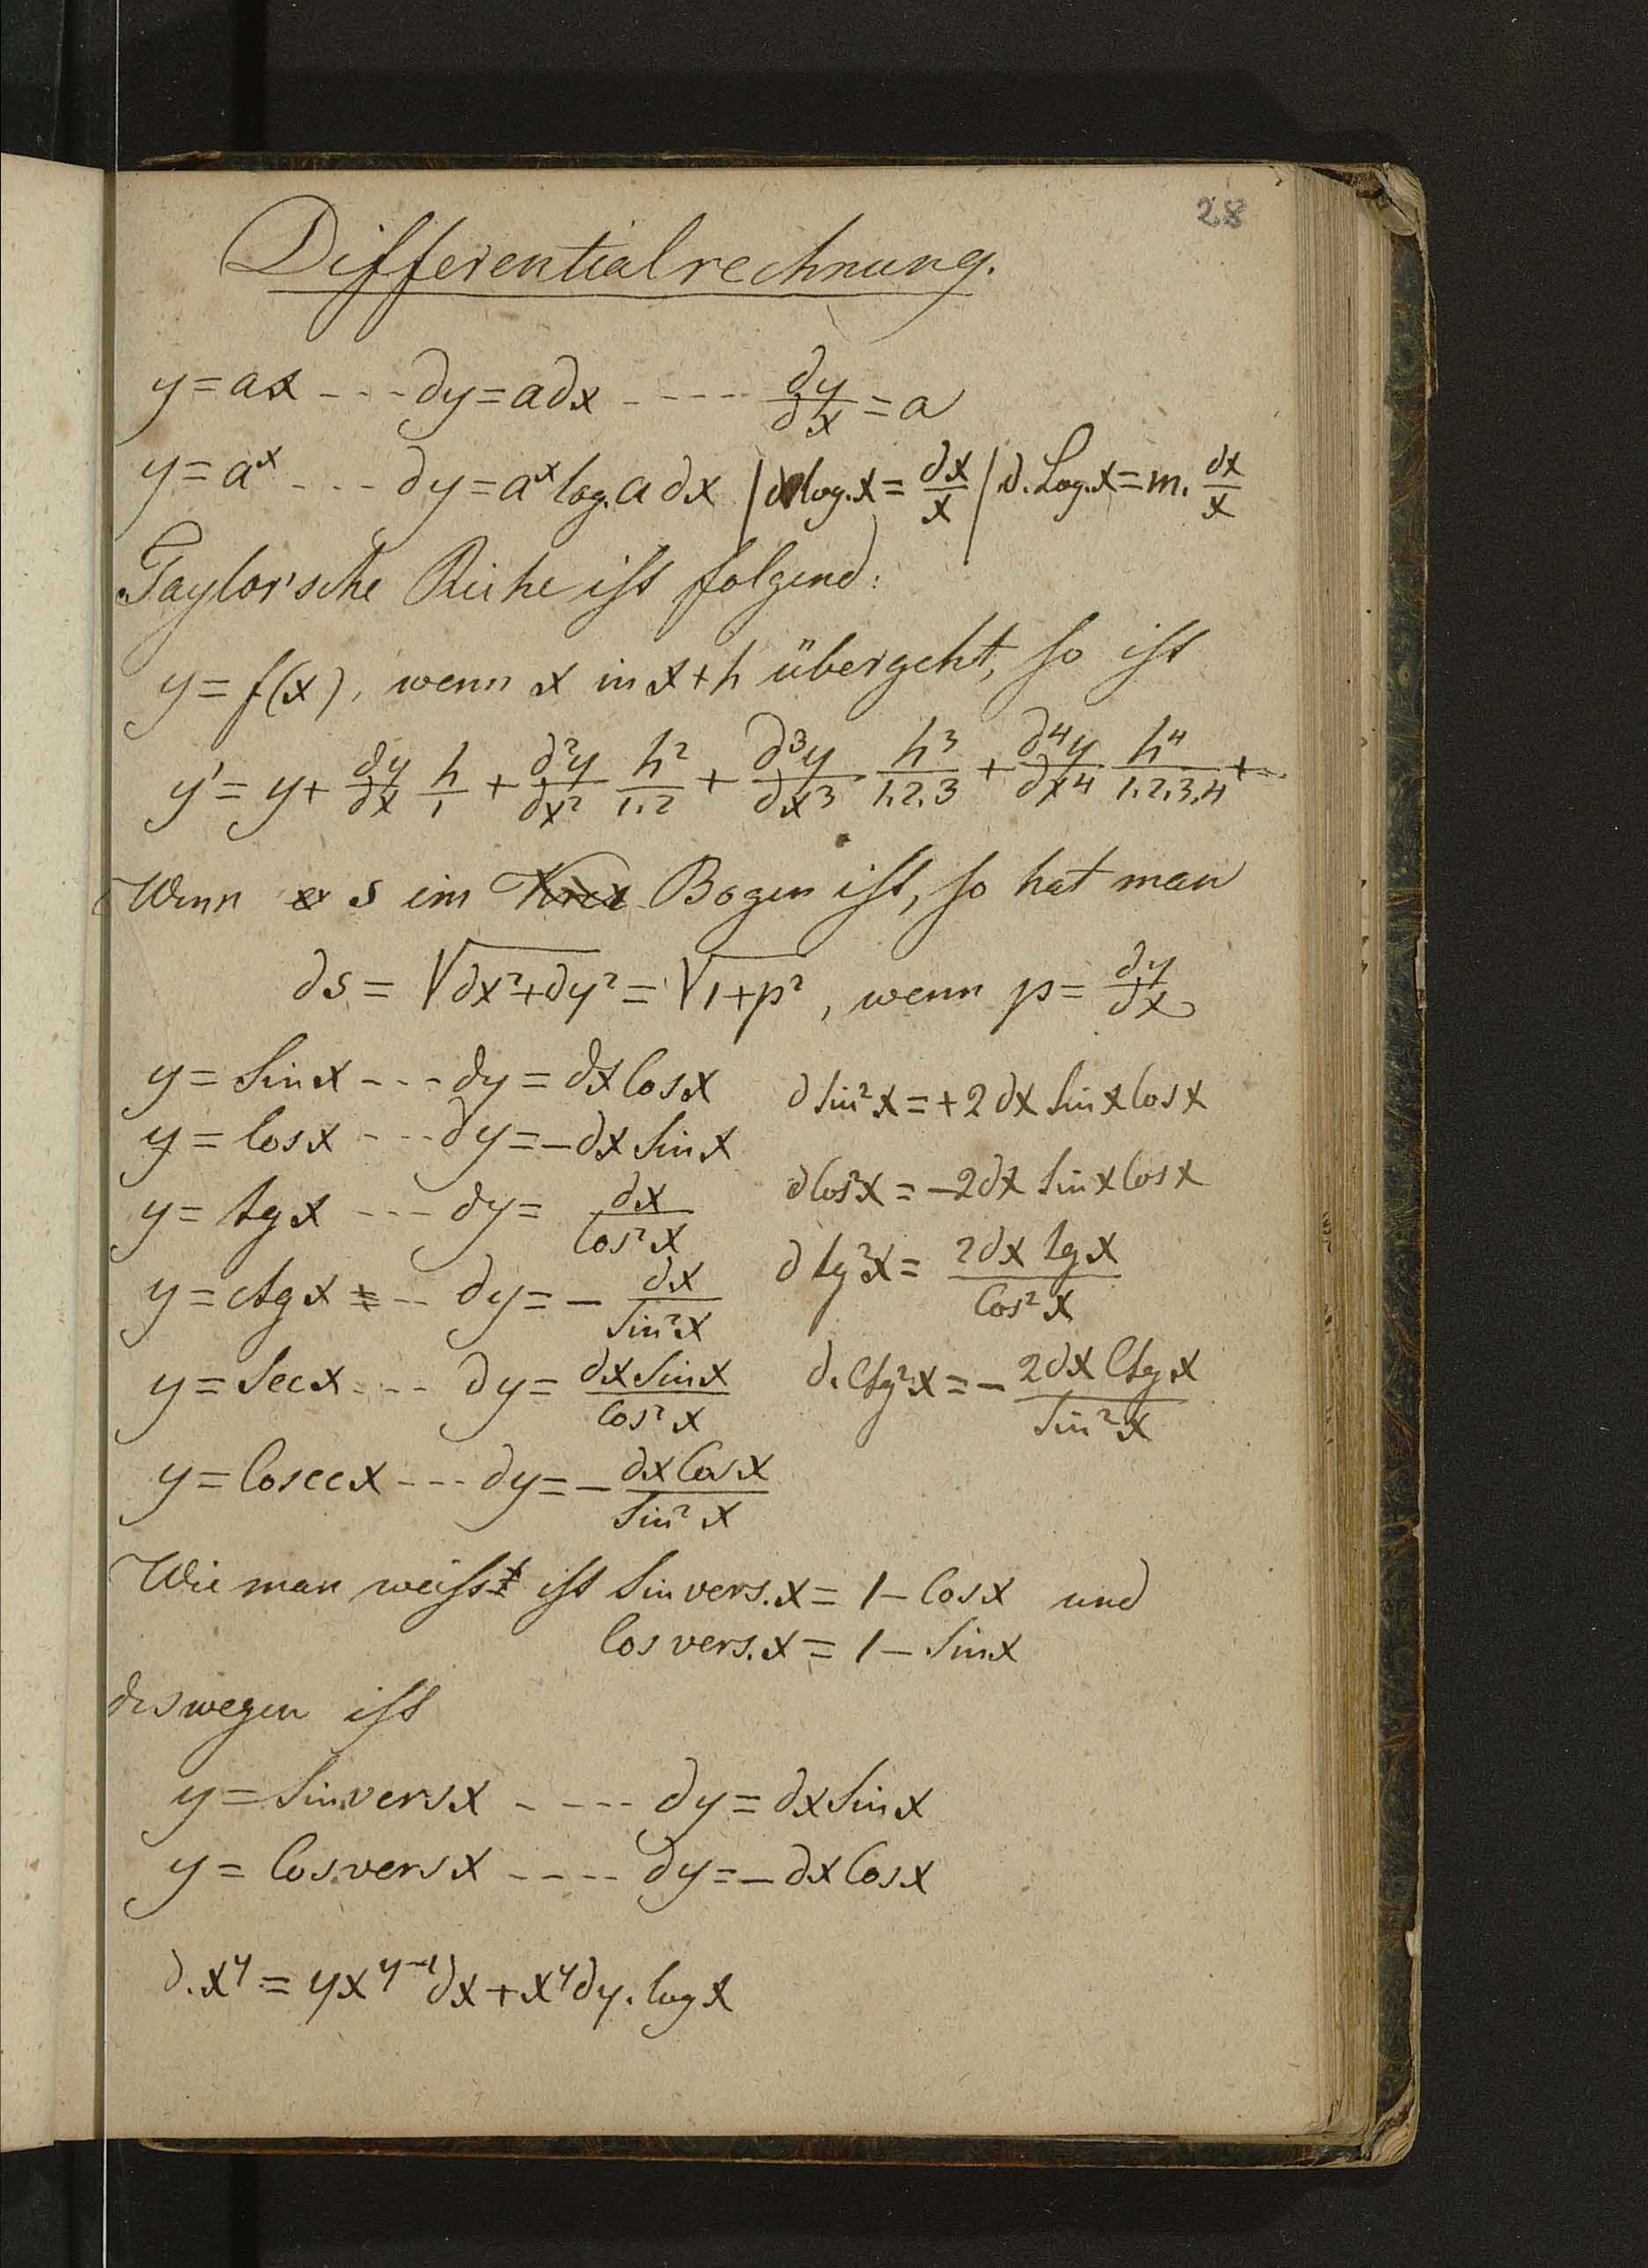 28
Differentialrechnung.
y = ax - - - ∂y = a∂x - - - - - ∂y/∂x = a
y = aˣ - - - ∂y = aˣ log. a ∂x | ∂ log. x = ∂x/x | ∂. Log. x = m. ∂x/x
Taylor'sche Reihe ist folgend:
y = f(x), wenn x in x+h übergeht, so ist
y' = y + ∂y/∂x h/1 + ∂²y/∂x² h²/1.2 + ∂³y/∂x³ h³/1.2.3 + ∂⁴y/∂x⁴ h⁴/1.2.3.4 + ...
Wenn s ein Bogen ist, so hat man
∂s = √(∂x²+∂y²) = √(1+p²), wenn p = ∂y/∂x
y = Sin x - - - ∂y = ∂x Cos x
∂ Sin² x = + 2 ∂x Sin x Cos x
y = Cos x - - - ∂y = – ∂x Sin x
∂ Cos² x = – 2∂x Sin x Cos x
y = tg x - - - ∂y = ∂x/Cos² x
∂ tg² x = 2∂x tg x/Cos² x
y = ctg x - - - ∂y = – ∂x/Sin² x
∂. Ctg² x = – 2∂x Ctg x/Sin² x
y = Sec x - - - ∂y = ∂x Sin x/Cos² x
y = Cosec x - - - ∂y = – ∂x Cos x/Sin² x
Wie man weisst ist Sin vers. x = 1 – Cos x und
Cos vers. x = 1 – Sin x
deswegen ist
y = Sin.vers x - - - - ∂y = ∂x Sin x
y = Cos.vers x - - - - ∂y = – ∂x Cos x
∂. xʸ = yxʸ⁻¹∂x + xʸ∂y. log x